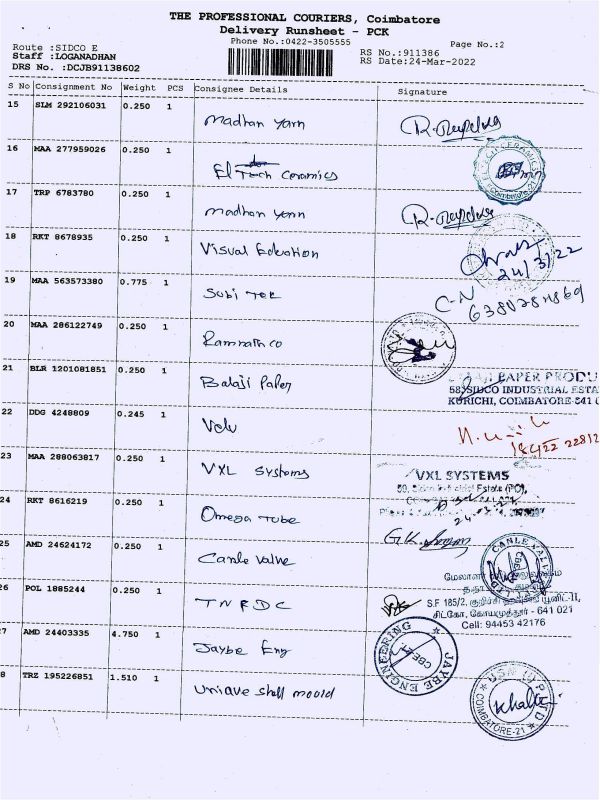 THE PROFESSIONAL COURIERS, Coimbatore
Delivery Runsheet - PCK
Phone No.:0422-3505555
Page No.:2
Route :SIDCO E
RS No.:911386
Staff :LOGANADHAN
RS Date:24-Mar-2022
DRS No. :DCJB91138602
S No Consignment No Weight PCS Consignee Details Signature
15 SLM 292106031 0.250 1
Madhan Yarn
16 MAA 277959026 0.250 1
El Tech Ceramics
17 TRP 6783780 0.250 1
Madhan Yarn
18 RKT 8678935 0.250 1
Visual Education
24/3/22
19 MAA 563573380 0.775 1
Subi Tex
C-N
20 MAA 286122749 0.250 1
Ramnath co
21 BLR 1201081851 0.250 1
Balaji Paper
PAPER PRODU
58, SIDCO INDUSTRIAL ESTA
KURICHI, COIMBATORE-641 0
22 DDG 4248809 0.245 1
Velu
23 MAA 288063817 0.250 1
VXL Systems
VXL SYSTEMS
24 RKT 8616219 0.250 1
Omega Tube
25 AMD 24624172 0.250 1
Canle Valve
26 POL 1885244 0.250 1
TNRDC
S.F 185/2,
சிட்கோ, கோயமுத்தூர் - 641 021
Cell: 94453 42176
7 AMD 24403335 4.750 1
Jaybe Eng
JAYBE ENGINEERING
CBE-21
8 TRZ 195226851 1.510 1
Unique Shell mould
COIMBATORE-21